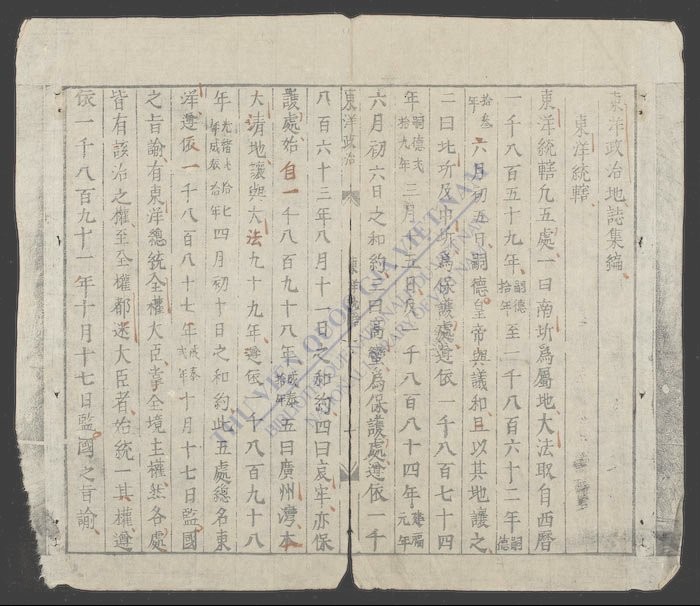 東洋政治地誌集編
東洋統轄
東洋統轄凢五處一曰南圻爲属地大法取自西曆
一千八百五十九年嗣德拾年至一千八百六十二年嗣德
拾叁年六月初五日嗣德皇帝與議和且以其地讓之
二曰北圻及中圻爲保護處遵依一千八百七十四
年嗣德弍拾九年三月十五日及一千八百八十四年建福元年
六月初六日之和約三曰高蠻爲保護處遵依一千
東洋政治
八百六十三年八月十一日之和約四曰哀牢亦保
護處始自一千八百九十八年成泰拾年五曰廣州灣本
大清地讓與大法九十九年遵依一千八百九十八
年光緒弍拾四年成泰拾年四月初十日之和約此五處總名東
洋遵依一千八百八十七年十月十七日監國
之旨諭有東洋總統全權大臣掌全境主權然各處
皆有該治之權至全權都迷大臣者始統一其權遵
依一千八百九十一年十月十七日監國之旨諭
THƯ VIỆN QUỐC GIA VIỆT NAM
BIBLIOTHEQUE NATIONALE DU VIETNAM
NATIONAL LIBRARY OF VIETNAM